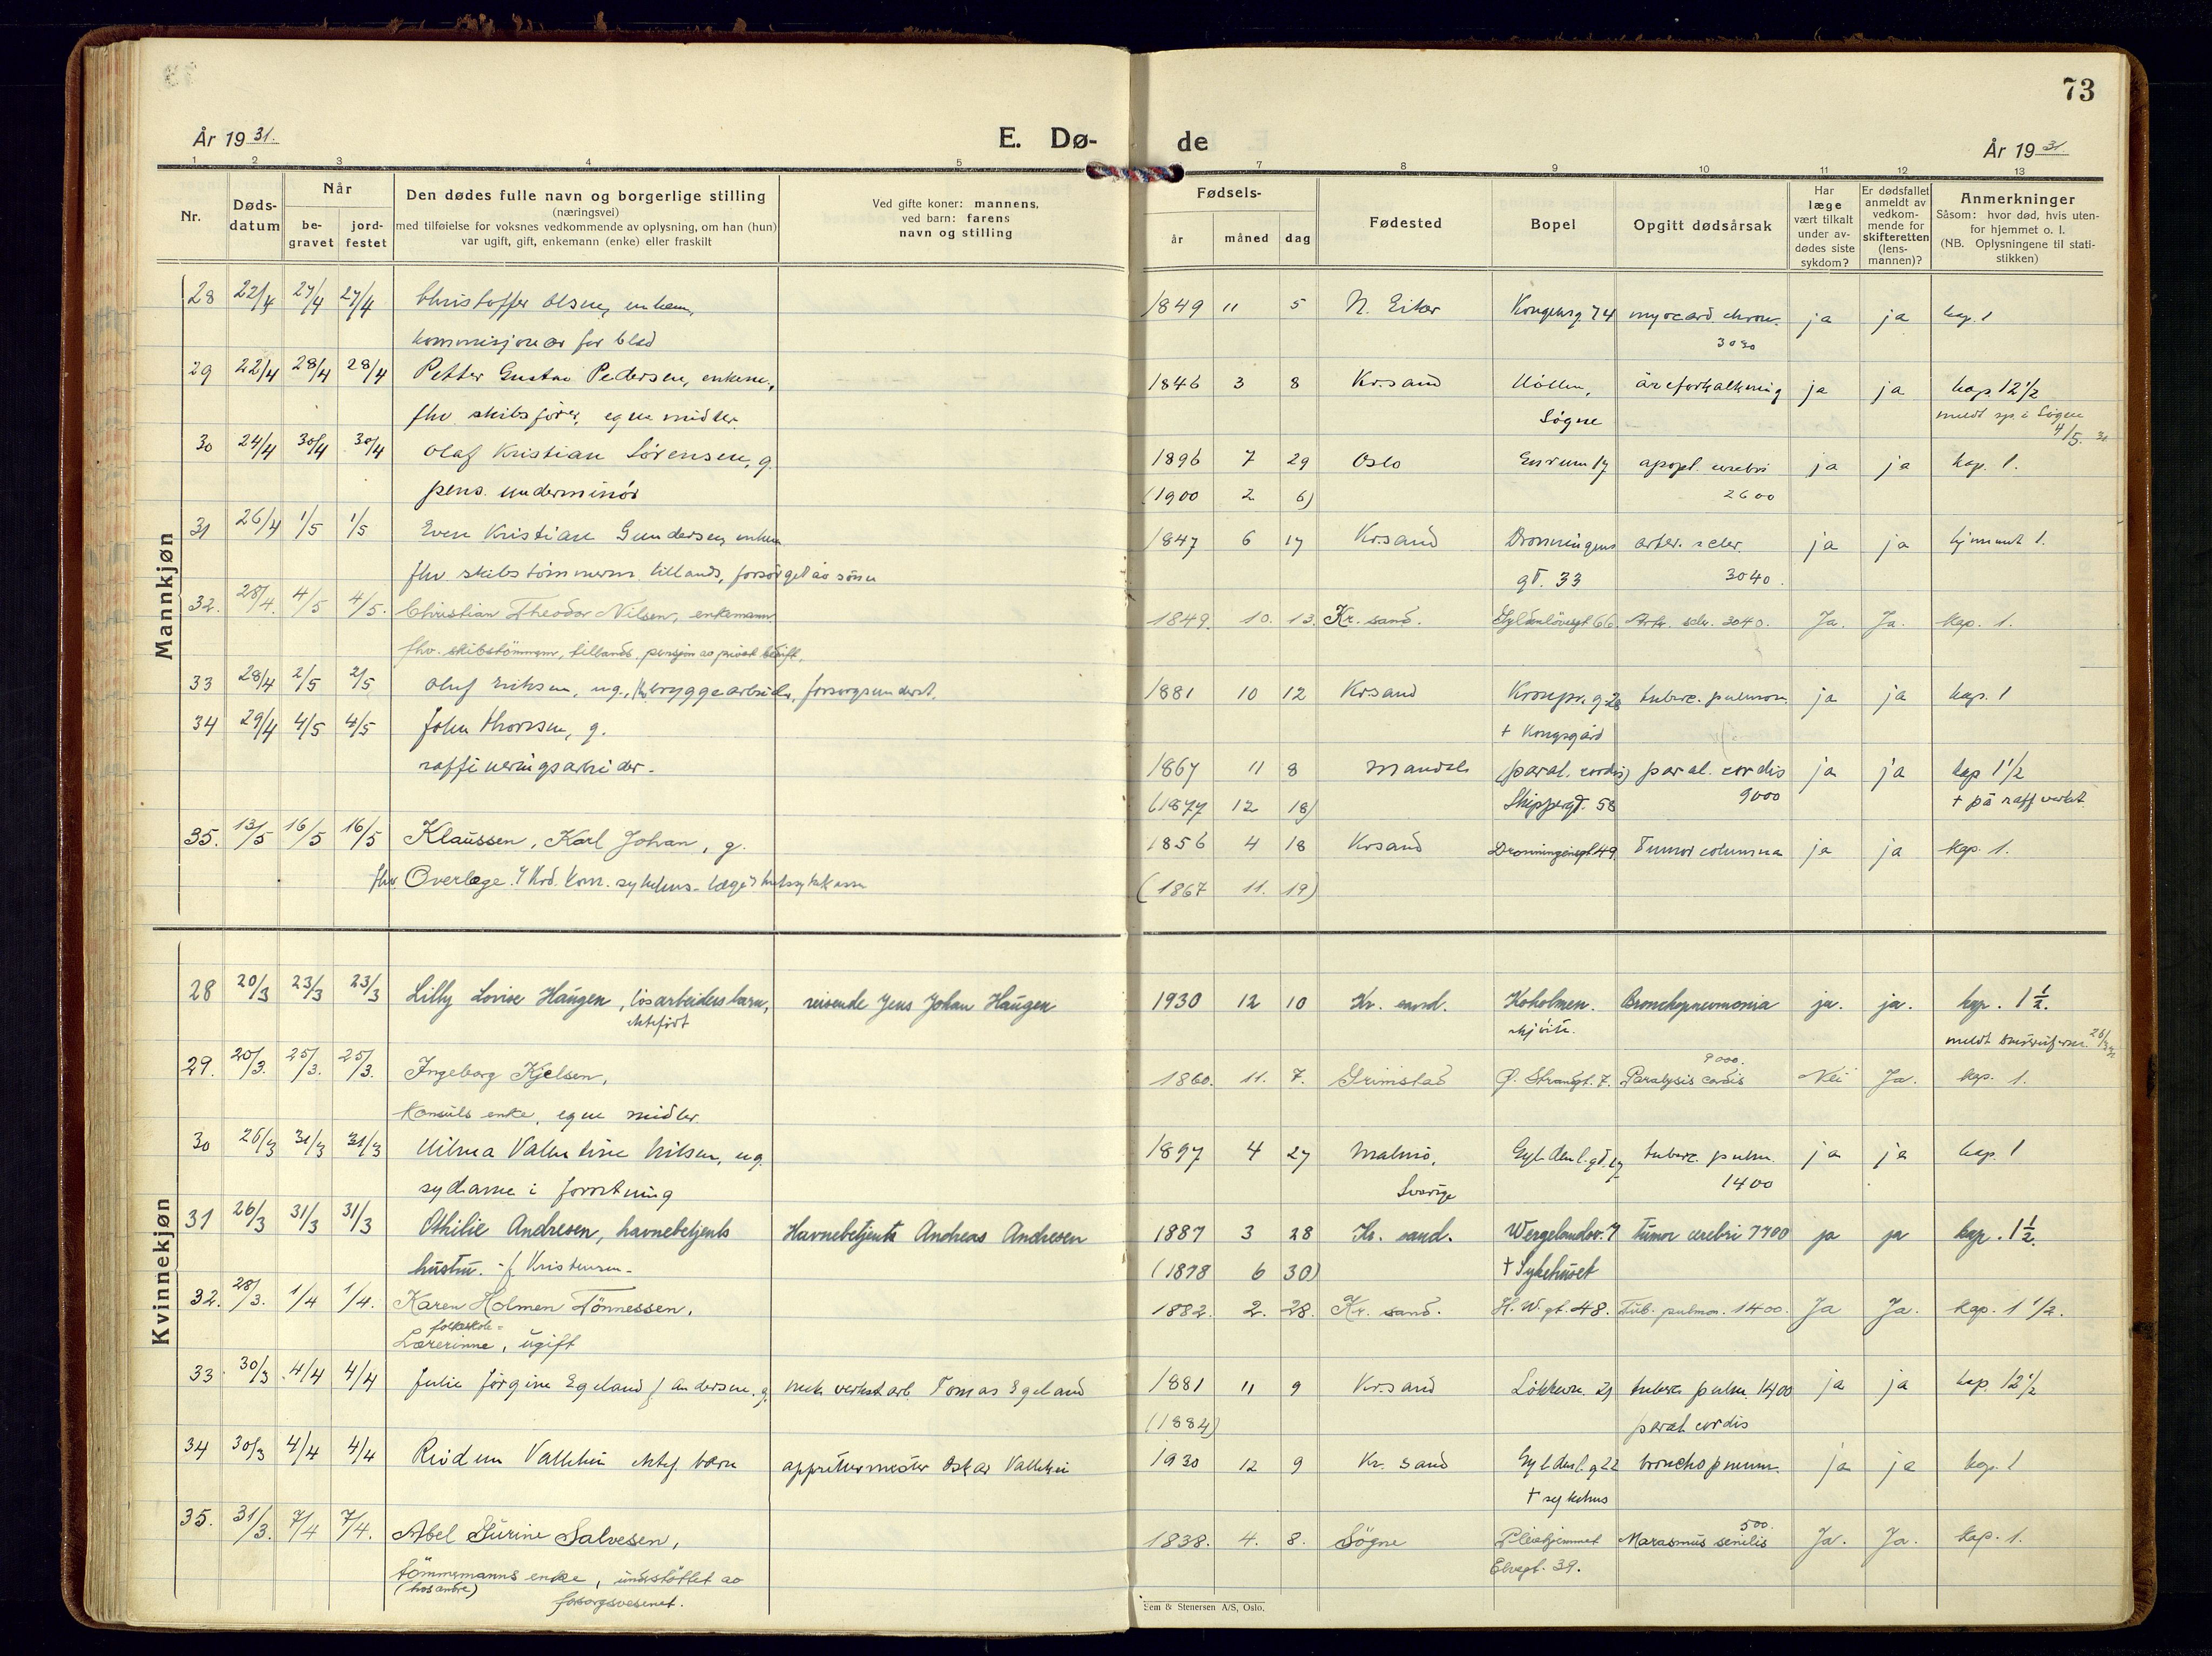 73
År 1931.
E. Dø-
de
År 1931.
1 2 3 4 5 7 8 9 10 11 12 13
Nr.
Døds-
datum
Når
be-
gravet
jord-
festet
Den dødes fulle navn og borgerlige stilling
(næringsvei)
med tilføielse for voksnes vedkommende av oplysning, om han (hun)
var ugift, gift, enkemann (enke) eller fraskilt
Ved gifte koner: mannens,
ved barn: farens
navn og stilling
Fødsels-
år
måned
dag
Fødested
Bopel
Opgitt dødsårsak
Har
læge
vært tilkalt
under av-
dødes siste
sykdom?
Er dødsfallet
anmeldt av
vedkom-
mende for
skifteretten
(lens-
mannen)?
Anmerkninger
Såsom: hvor død, hvis uten-
for hjemmet o. l.
(NB. Oplysningene til stati-
stikken)
Mannkjøn
28 22/4 27/4 27/4 Christoffer Olsen, enkem, 1849 11 5 N. Eiker Kongensg 74 myocard. chron. ja ja kap. 1
kommisjonær for blad 3030
29 22/4 28/4 28/4 Petter Gustav Pedersen, enkem, 1846 3 8 Kr.sand Høllen, åreforkalkning ja ja kap 12 1/2
fhv skibsfører, egne midler Søgne meldt sp. i Søgne
4/5. 31
30 24/4 30/4 30/4 Olaf Kristian Sørensen, g. 1896 7 29 Oslo 17 apopl. cerebri ja ja kap. 1.
pens. underminör (1900 2 6) 2600
31 26/4 1/5 1/5 Even Kristian Gundersen, enkem 1847 6 17 Kr.sand Dronningens arter. scler. ja ja hjemmet 1.
fhv skibstømmerm. tillands, forsørget av sønn gt. 33 3040.
32. 28/4. 4/5 4/5. Christian Theodor Nilsen, enkemann 1849. 10. 13. Kr. sand. Gyldenløvesgt 66 Arter. scler. 3040. Ja. Ja. kap. 1.
fhv. skibstömmerm, tillands, pensjon av privat bedrift.
33 28/4 2/5 2/5 Oluf Eriksen, ug., bryggearbeider, forsorgsunderst. 1881 10 12 Krsand Kronpr. g 28 tuberc. pulmon. ja ja kap. 1
† Kongsgård
34 29/4 4/5 4/5 John Thorsen, g.
raffineringsarbeider. 1867 11 8 Mandal (paral. cordis) paral. cordis ja ja kap 1 1/2
(1877 12 18) Skippergt. 58 9000 † på raff verket.
35. 13/5 16/5 16/5 Klaussen, Karl Johan, g. 1856 4 18 Krsand Dronningensgt 49 Tumor columna ja ja kap. 1.
fhv Overlæge v Krs. kom. sykehus - læge v (1867 11. 19)
Kvinnekjøn
28 20/3 23/3 23/3 Lilly Lovise Haugen, løsarbeiders barn, reisende Jens Johan Haugen 1930 12 10 Kr. sand. Koholmen. Bronchopneumonia ja. ja. kap. 1 1/2.
ektefödt
29. 20/3. 25/3. 25/3. Ingeborg Kjelsen, 1860. 11. 7. Grimstad Ø. Strandgt. 7. Paralysis cordis 9000. Nei Ja. kap. 1.
Konsuls enke, egne midler
30 26/3 31/3 31/3 Wilma Valentine Nilsen, ug. 1897 4 27 Malmö, Gyldenl. gt. 17 tuberc. pulm. ja ja kap. 1
sydame i forretning Sverige 1400
31 26/3 31/3 31/3 Othilie Andresen, havnebetjents Havnebetjent Andreas Andresen 1887 3 28 Kr. sand. Wergelandsv. 7 Tumor cerebri 7700 ja ja kap. 1 1/2.
hustru. - f Kristensen - (1878 6 30) † Sykehuset
32. 28/3. 1/4 1/4. Karen Holmen Tönnessen, 1882. 2. 28. Kr. sand. H. W. gt. 48. Tub. pulmon. 1400. Ja Ja. kap. 1 1/2.
folkeskole-
Lærerinne, ugift
33 30/3 4/4 4/4 Julie Jørgine Egeland f Andersen. g. mek verkst arb Tomas Egeland 1881 11 9 Kr.sand Løkkevn. 21 tuberc pulm. 1400 ja ja kap. 12 1/2
(1884) paral cordis
34 30/3 4/4 4/4 Reidun Vallhei ektef. barn appreturmester Oskar Vallhei 1930 12 9 Kr. sand Gyldenl. g 22 bronchopneum. ja ja kap. 1
† sykehus
35. 31/3. 7/4 7/4. Abel Surine Salvesen, 1838. 4. 8. Sögne Pleiehjemmet Marasmus senilis 500. Ja. Ja. kap. 1.
tömmermanns enke, understöttet av Elvegt. 39.
(hos andre) forsorgsvesenet.
Sem & Stenersen A/S, Oslo.